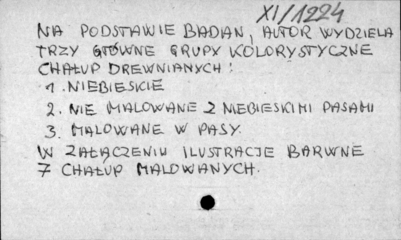 XI/1224
NA PODSTAWIE BADAŃ, AUTOR WYDZIELA
TRZY GŁÓWNE GRUPY KOLORYSTYCZNE
CHAŁUP DREWNIANYCH:
1. NIEBIESKIE
2. NIE MALOWANE Z NIEBIESKIMI PASAMI
3. MALOWANE W PASY.
W ZAŁĄCZENIU ILUSTRACJE BARWNE
7 CHAŁUP MALOWANYCH.